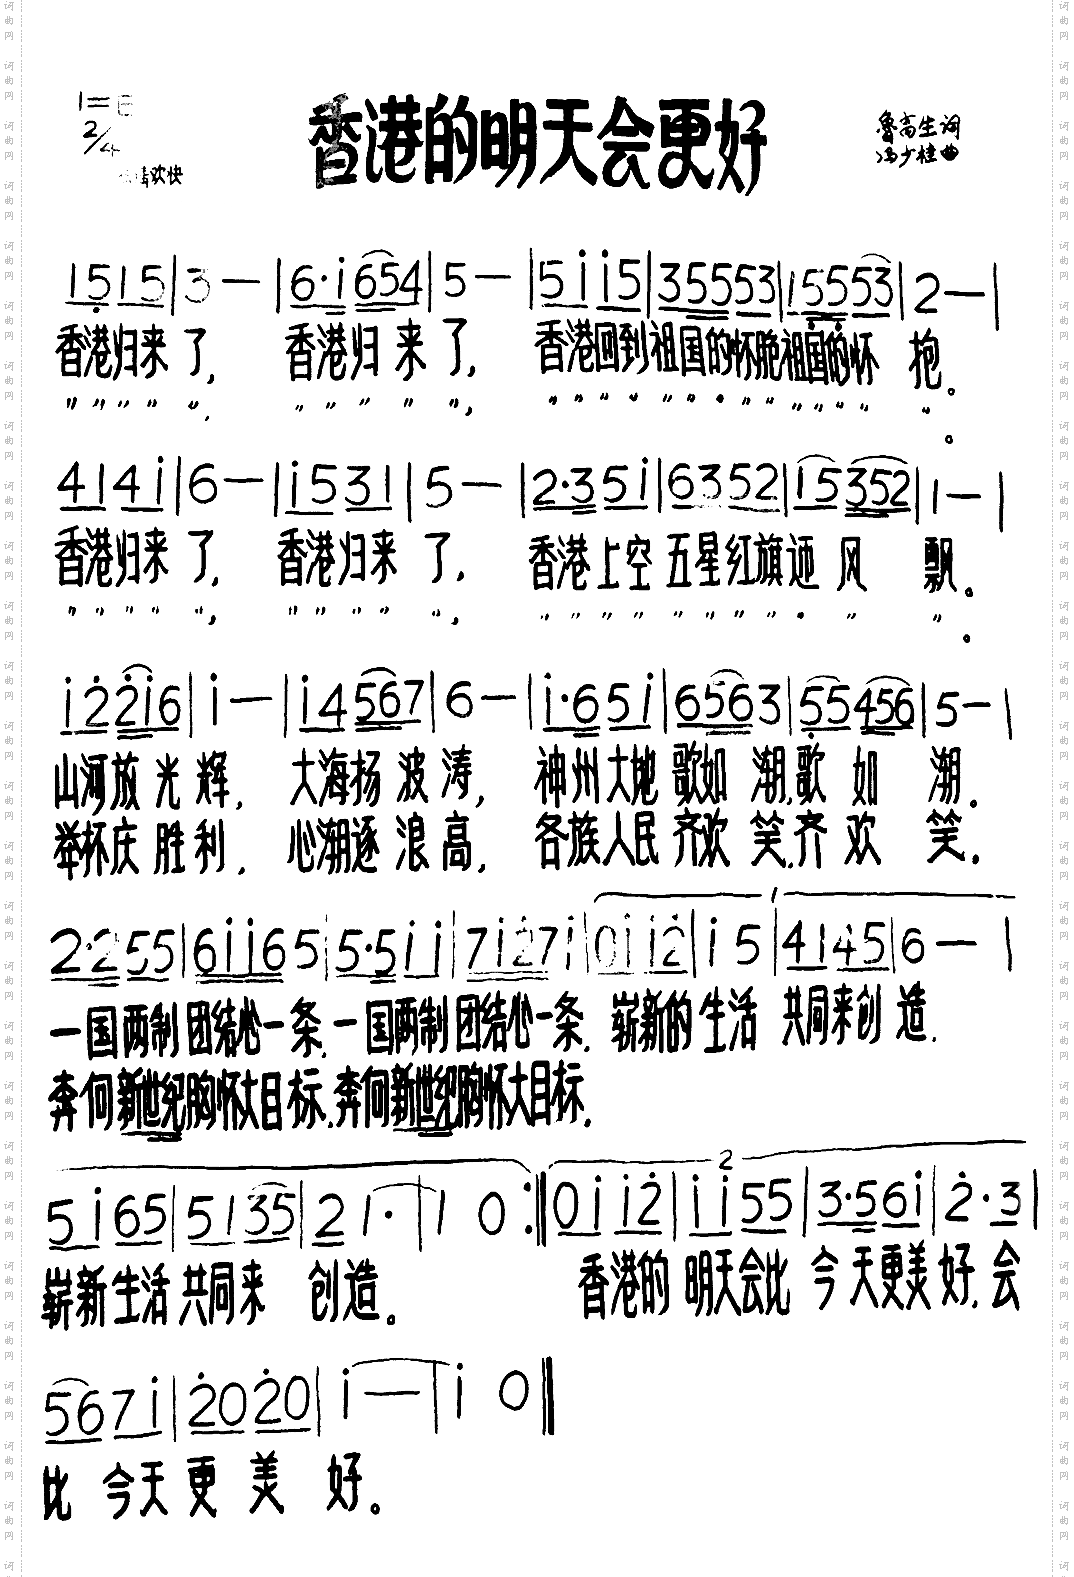 香港的明天会更好
1=
2/4
欢快
鲁高生词
冯少桂曲
1 5 1 5 | 3 — | 6· i 6 5 4 | 5 — | 5 i i 5 | 3 5 5 5 3 | 1 5 5 5 3 | 2 — |
香港归来了, 香港归来了, 香港回到祖国的怀抱祖国的怀抱。
〃 〃 〃 〃 〃, 〃 〃 〃 〃 〃, 〃 〃 〃 〃 〃 〃 〃 〃 〃 〃 〃 〃 〃 〃。
4 1 4 i | 6 — | i 5 3 1 | 5 — | 2·3 5 i | 6 3 5 2 | 1 5 3 5 2 | 1 — |
香港归来了, 香港归来了, 香港上空五星红旗迎风飘。
〃 〃 〃 〃 〃, 〃 〃 〃 〃 〃, 〃 〃 〃 〃 〃 〃 〃 〃 〃 〃 〃。
i 2 2 i 6 | i — | i 4 5 6 7 | 6 — | i·6 5 i | 6 5 6 3 | 5 5 4 5 6 | 5 — |
山河放光辉, 大海扬波涛, 神州大地歌如潮,歌如潮。
举杯庆胜利, 心潮逐浪高, 各族人民齐欢笑,齐欢笑。
2·2 5 5 | 6 i i 6 5 | 5·5 i i | 7 i 2 7 i | 0 i i 2 | i 5 | 4 1 4 5 | 6 — |
1
一国两制团结心一条,一国两制团结心一条. 崭新的生活共同来创造.
奔向新世纪胸怀大目标.奔向新世纪胸怀大目标.
5 i 6 5 | 5 1 3 5 | 2 1· | 1 0 :‖ 0 i i 2 | i i 5 5 | 3·5 6 i | 2· 3 |
2
崭新生活共同来创造。 香港的明天会比今天更美好,会
5 6 7 i | 2 0 2 0 | i — | i 0 ‖
比今天更美好。
词曲网